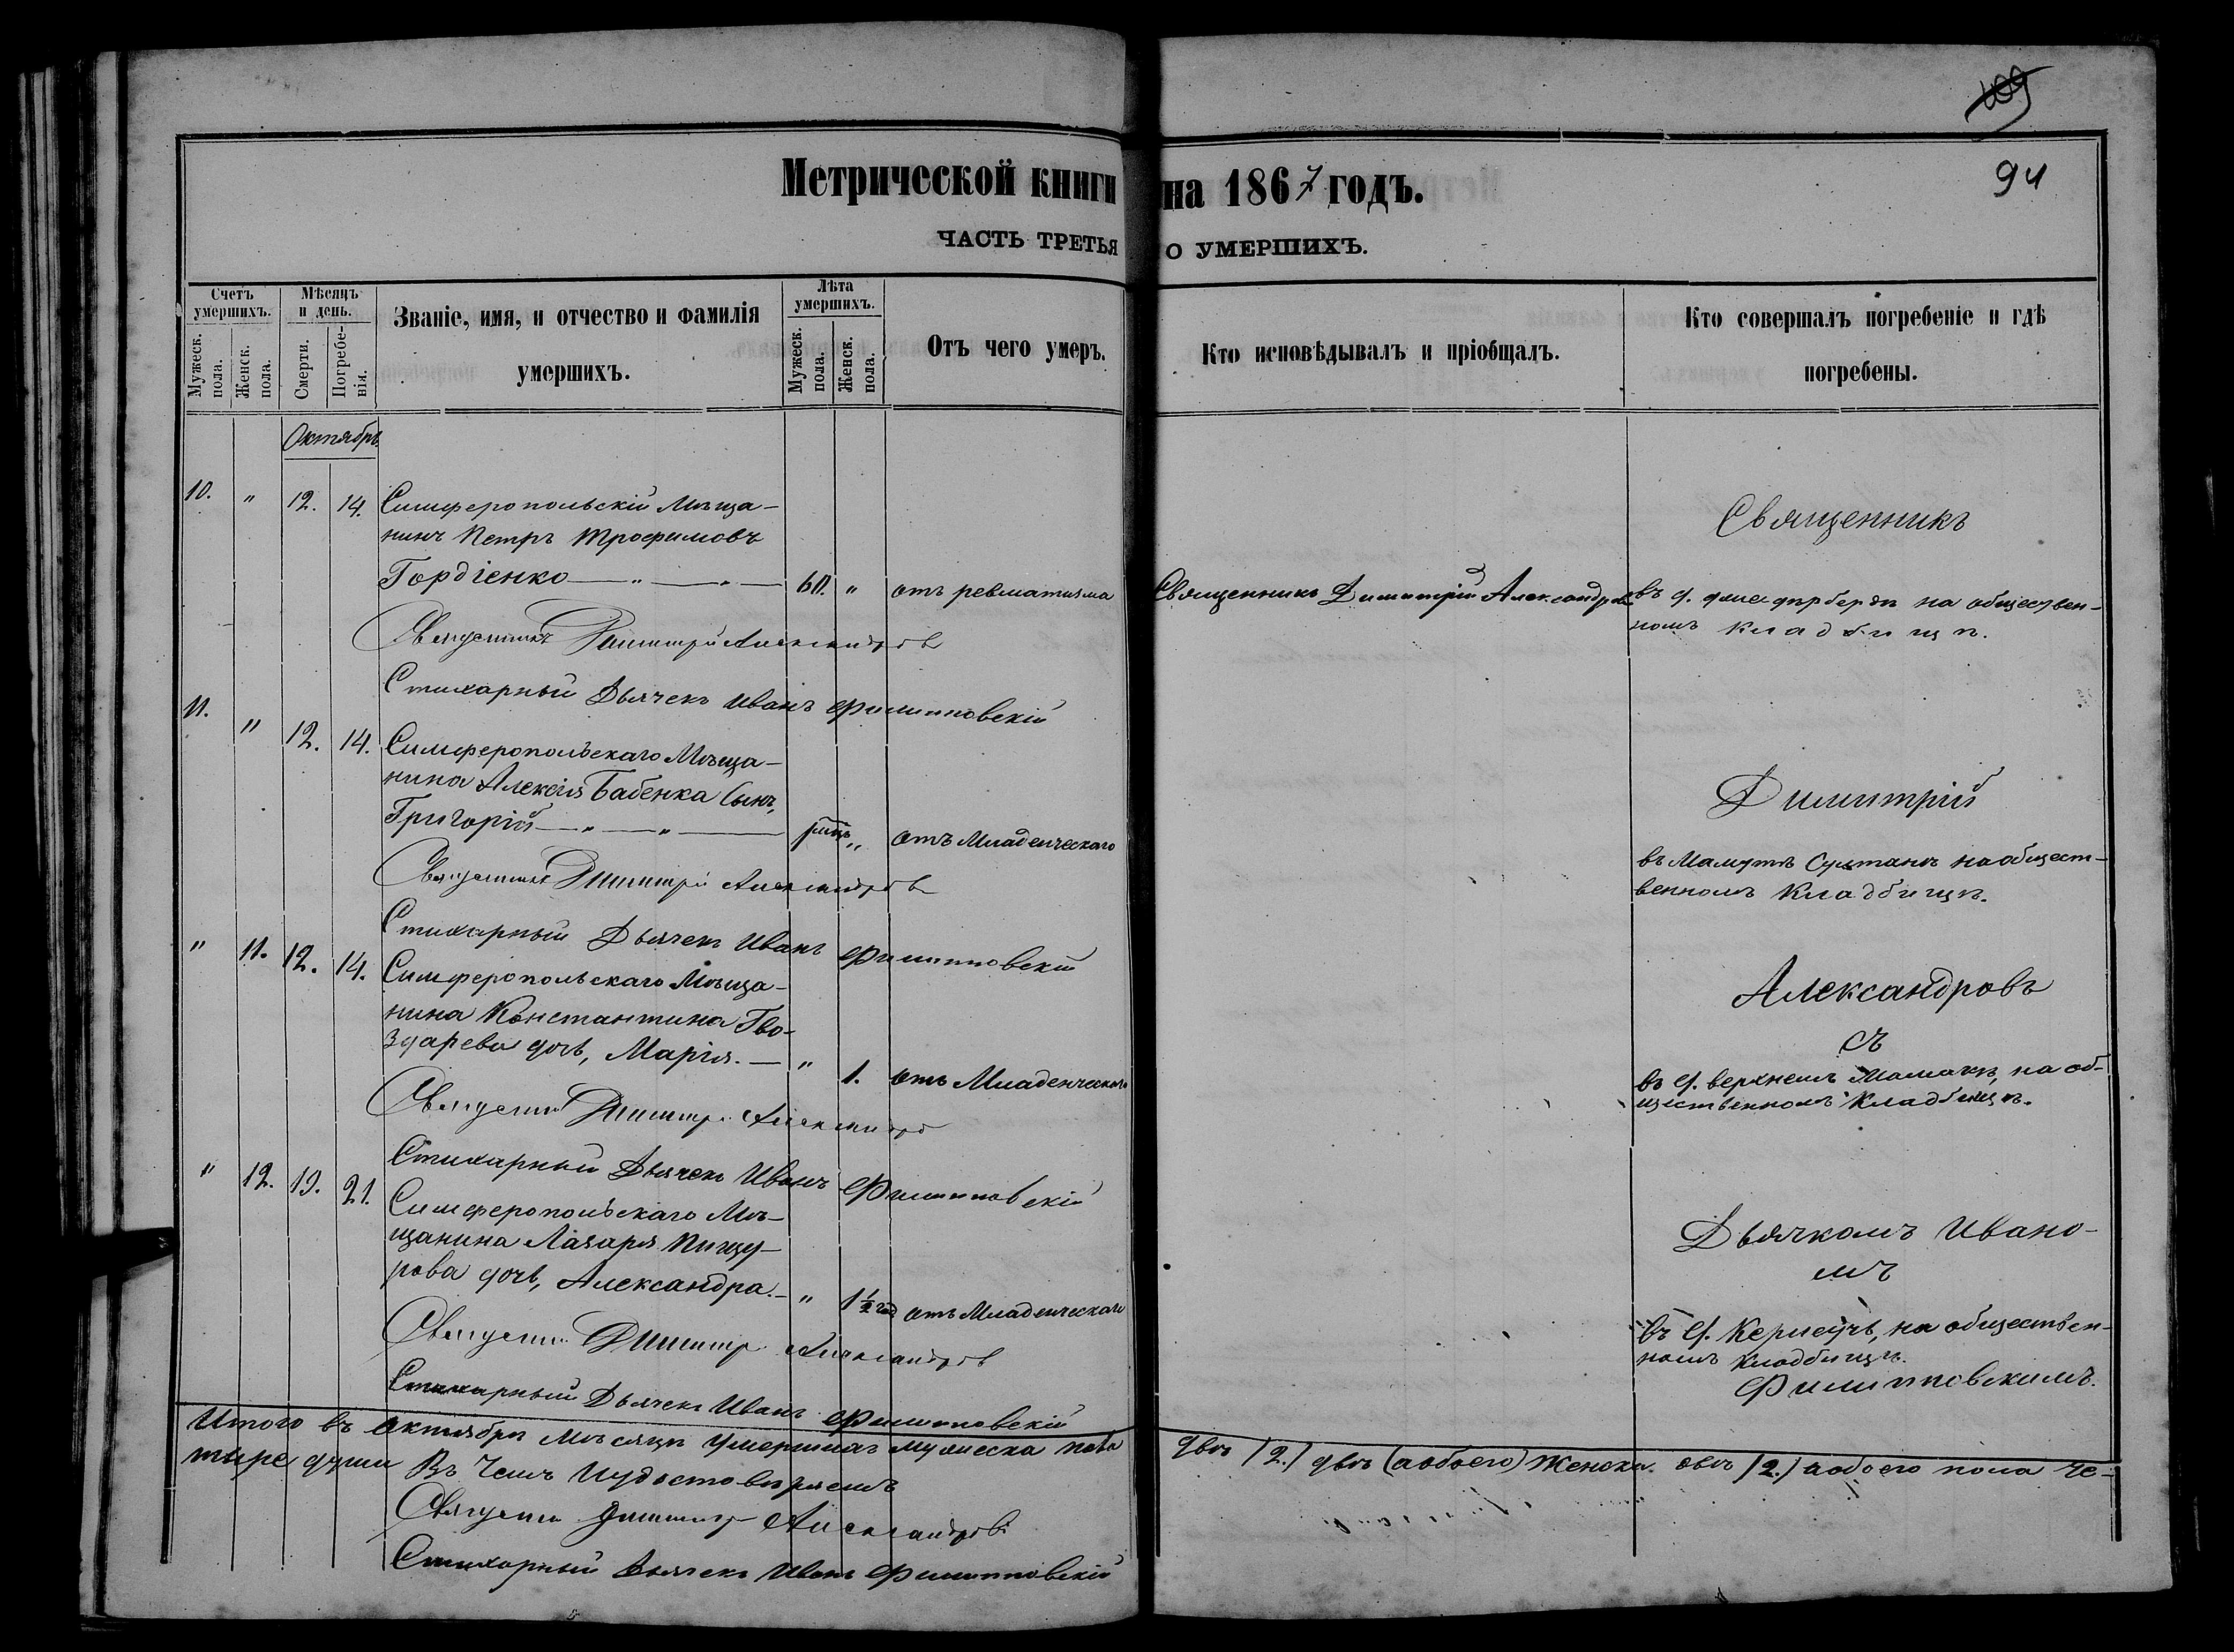 109
94
Метрической книги на 1867 годъ.
ЧАСТЬ ТРЕТЬЯ О УМЕРШИХЪ.
Счетъ умершихъ.
Мужеск. пола.
Женск. пола.
Мѣсяцъ и день.
Смерти.
Погребенія.
Званіе, имя, и отчество и фамилія
умершихъ.
Лѣта умершихъ.
Мужеск. пола.
Женск. пола.
Отъ чего умеръ.
Кто исповѣдывалъ и пріобщалъ.
Кто совершалъ погребеніе и гдѣ
погребены.
Октябрь
10. " 12. 14. Симферопольскій Мѣща-
нинъ Петръ Трофимовъ
Гордіенко 60. " отъ ревматизма
Священникъ Димитрій Александровъ
Священникъ
въ д. на обществен-
номъ кладбищѣ.
Священникъ Димитрій Александровъ
Стихарный Дьячекъ Иванъ Филипповскій
11. " 12. 14. Симферопольскаго Мѣща-
нина Алексія Бабенка сынъ,
Григорій " отъ Младенческаго
Димитрій
въ Мамутъ Султанъ на общест-
венномъ Кладбищѣ.
Священникъ Димитрій Александровъ
Стихарный Дьячекъ Иванъ Филипповскій
" 11. 12. 14. Симферопольскаго Мѣща-
нина Константина Гво-
здарева дочь, Марія. " 1. отъ Младенческаго
Александровъ
съ
въ д. верхнемъ Мамакѣ, на об-
щественномъ Кладбищѣ.
Священникъ Димитрій Александровъ
Стихарный Дьячекъ Иванъ Филипповскій
" 12. 19. 21. Симферопольскаго Мѣ-
щанина Лазаря Пищу-
рова дочь, Александра. " 1½ год отъ Младенческаго
Дьячкомъ Ивано-
мъ
въ д. на обществен-
номъ кладбищѣ.
Филипповскимъ.
Священникъ Димитрій Александровъ
Стихарный Дьячекъ Иванъ Филипповскій
Итого въ октябрѣ мѣсяцѣ умершихъ мужеска пола двѣ (2.) двѣ (а обоего) женска. двѣ (2.) а обоего пола че-
тыре души
Въ чемъ и удостовѣряемъ
Священникъ Димитрій Александровъ
Стихарный Дьячекъ Иванъ Филипповскій